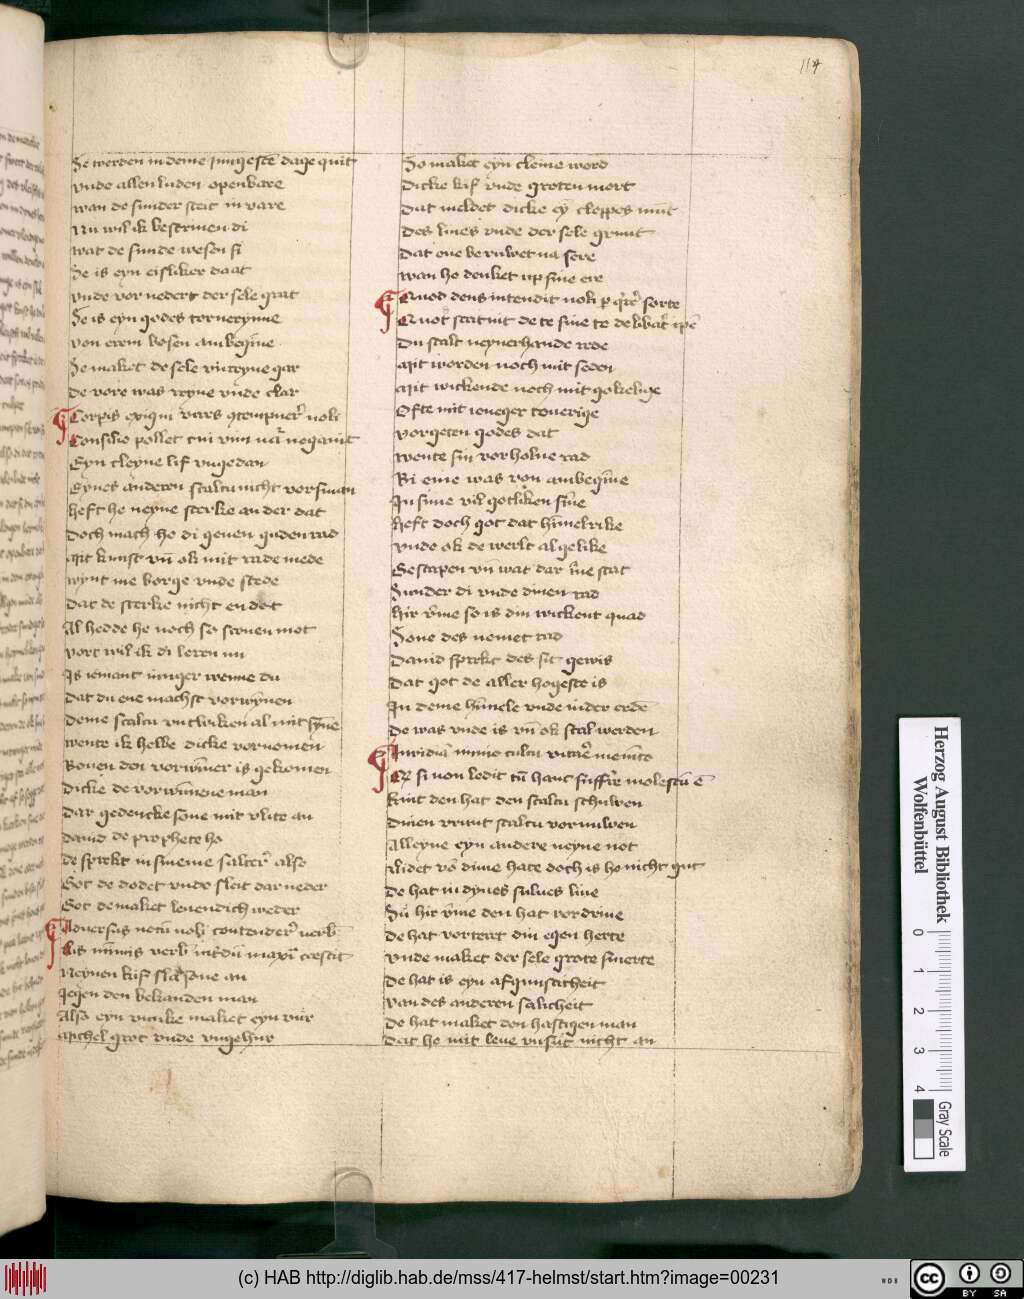 114
Se werden in deme jungesten dage quit
vnde allen luden openbare
wan de sunder steit in vare
Nu wil ik bescriuen di
wat de sunde wesen si
Se is eyn eisliker daat
vnde vornedert der sele grat
Se is eyn godes tornerynne
von erem bosen ambegīne
Se maket de sele vnreyne gar
de vore was reyne vnde clar
Corpis exigui vires 9tempner' noli
Consilio pollet cui vim natā negauit
Eyn cleyne lif vngedan
Eynes anderen scaltu nicht vorsman
heft he neyne sterke an der dat
Doch mach he di geuen guden rad
Mit kunst vn̄ ok mit rade mede
wynt me borge vnde stede
Dat de sterke nicht en dot
Al hedde he noch so sconen mot
Vort wil ik di leren nu
Is iemant iunger wenne du
Dat du ene machst vorwinnen
Deme scaltu vntwiken al mit synē
wente ik hebbe dicke vornomen
Bouen den vorwīner is gekomen
Dicke de vorwunnene man
Dar gedencke sone mit vlite an
Dauid de prophete ho
De sprekt in sineme salter' also
Got de dodet vnde sleit dar neder
Got de maket leuendich weder
Aduersus notū noli contender' verb'
Lis minimis verb' int'dū maxiā crescit
Neynen kiif sla sone an
Jegen den bekanden man
Also eyn vunke maket eyn vur
Michel grot vnde vngehur
So maket eyn cleine word
Dicke kif vnde groten mort
Dat meldet dicke ey cleppes mūt
Des liues vnde der sele grunt
Dat ene beruwet na sere
wan he denket up sine ere
Quod deus intendit noli p q'rer' sorte
Quot statuit de te sine te deliberat ipē
Du scalt neynerhande rede
Mit worden noch mit seden
Mit wickende noch mit gokelige
Ofte mit ieneger touerige
Vorgeten godes dat
wente sin vorholne rad
Bi eme was von ambegīne
In sime vil gotliken sīne
Heft doch got dat himelrike
Vnde ok de werlt al gelike
Gescapen vn̄ wat dar īne stat
Sunder di vnde dinen rad
Hir vme so is din wickent quad
Sone des nemet rad
Dauid sprekt des sit gewis
Dat got de aller hogeste is
In deme himele vnde in der erdē
De was vnde is vn̄ ok scal werden
Inuidiā nimio cultu vitare memēto
Que si non ledit tn̄ hanc sufferre molestū ē
Kint den hat den scaltu schuwen
Dinen vrunt scaltu vornuwen
Alleyne eyn andere neyne not
Lidet vō dime hate doch is he nicht gut
De hat in dynes sulues liue
Su hir vme den hat vordriue
De hat vorteret din egen herte
Vnde maket der sele grote smerte
De hat is eyn afgunsticheit
Van des anderen salicheit
De hat maket den hastigen man
Dat he mit leue vnsut nicht an
Herzog August Bibliothek
Wolfenbüttel
0 1 2 3 4
Gray Scale
(c) HAB http://diglib.hab.de/mss/417-helmst/start.htm?image=00231
WDB
cc BY SA